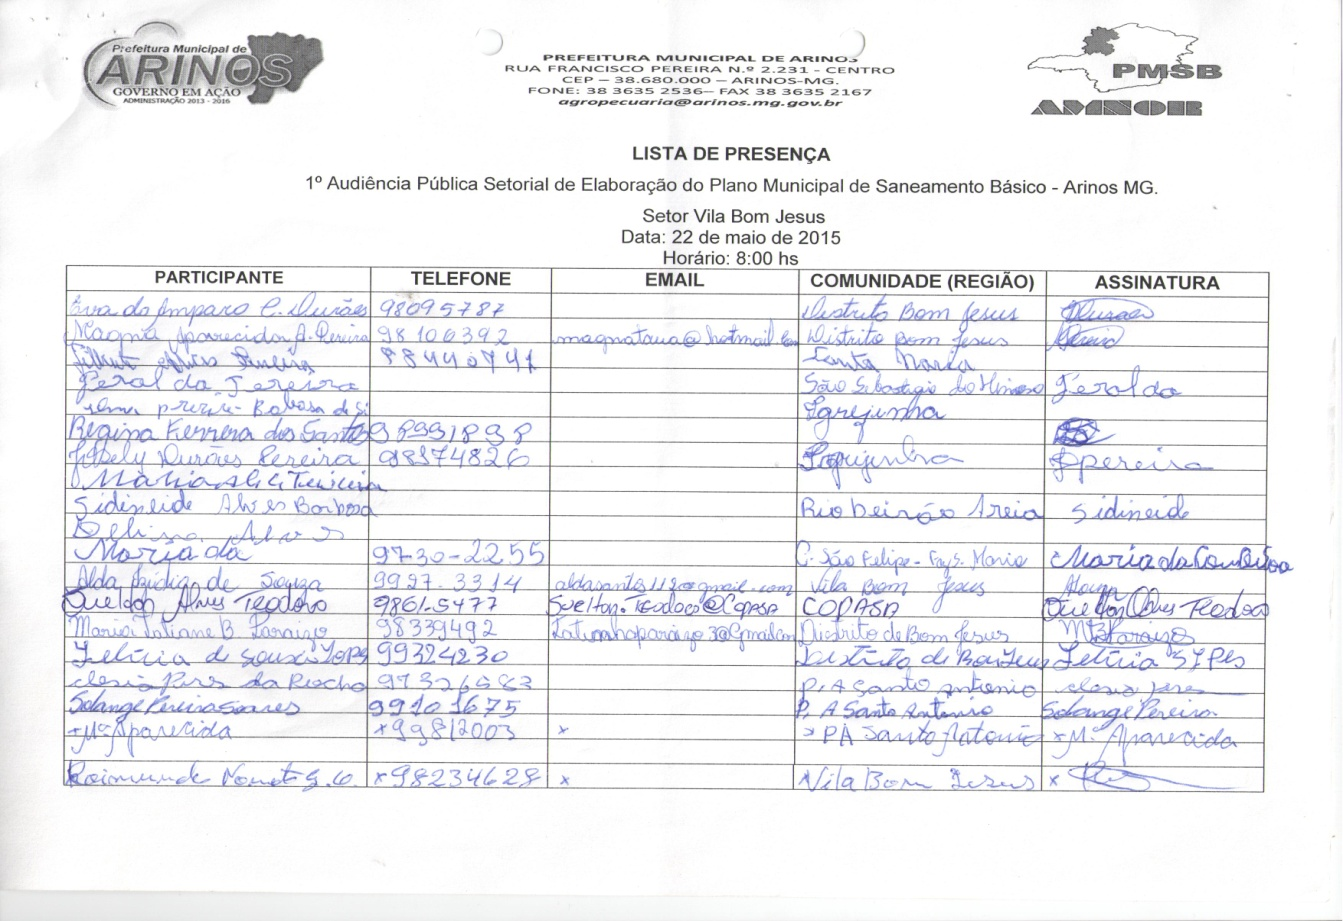 Prefeitura Municipal de
ARINOS
GOVERNO EM AÇÃO
ADMINISTRAÇÃO 2013 - 2016
PREFEITURA MUNICIPAL DE ARINOS
RUA FRANCISCO PEREIRA N.º 2.231 - CENTRO
CEP – 38.680.000 – ARINOS-MG.
FONE: 38 3635 2536– FAX 38 3635 2167
agropecuaria@arinos.mg.gov.br
PMSB
AMNOR
LISTA DE PRESENÇA
1º Audiência Pública Setorial de Elaboração do Plano Municipal de Saneamento Básico - Arinos MG.
Setor Vila Bom Jesus
Data: 22 de maio de 2015
Horário: 8:00 hs
PARTICIPANTE TELEFONE EMAIL COMUNIDADE (REGIÃO) ASSINATURA
Eva do Amparo C. Durães 98095787 Distrito Bom Jesus Durães
Magna Aparecida A. Pereira 98106392 Distrito Bom Jesus
88440741 Santa Maria
Geraldo Ferreira São Sebastião do Geraldo
Barbosa Igrejinha
Regina Ferrera dos Santos 98991898
Durães Pereira 98374826 Igrejinha Jpereira
Maria Teixeira
Sidineide Alves Barbosa Riobeirão Areia Sidineide
Alves
Maria da 9730-2255 C. São Felipe - Maria da
Alda de Souza 9927-3314 Vila Bom Jesus
Suelton Alves Teodoro 9861-5477 COPASA Suelton Alves Teodoro
Tatiane B. Paraizo 98339492 Distrito de Bom Jesus
Letícia de Souza Lopes 99324230 Distrito de Bom Jesus Letícia
Pires da Rocha P. A Santo Antonio
Solange Pereira Soares 99101675 P. A Santo Antonio Solange Pereira
Mª Aparecida x99812003 x PA Santo Antonio x Mª Aparecida
Raimundo x98234628 x Vila Bom Jesus x